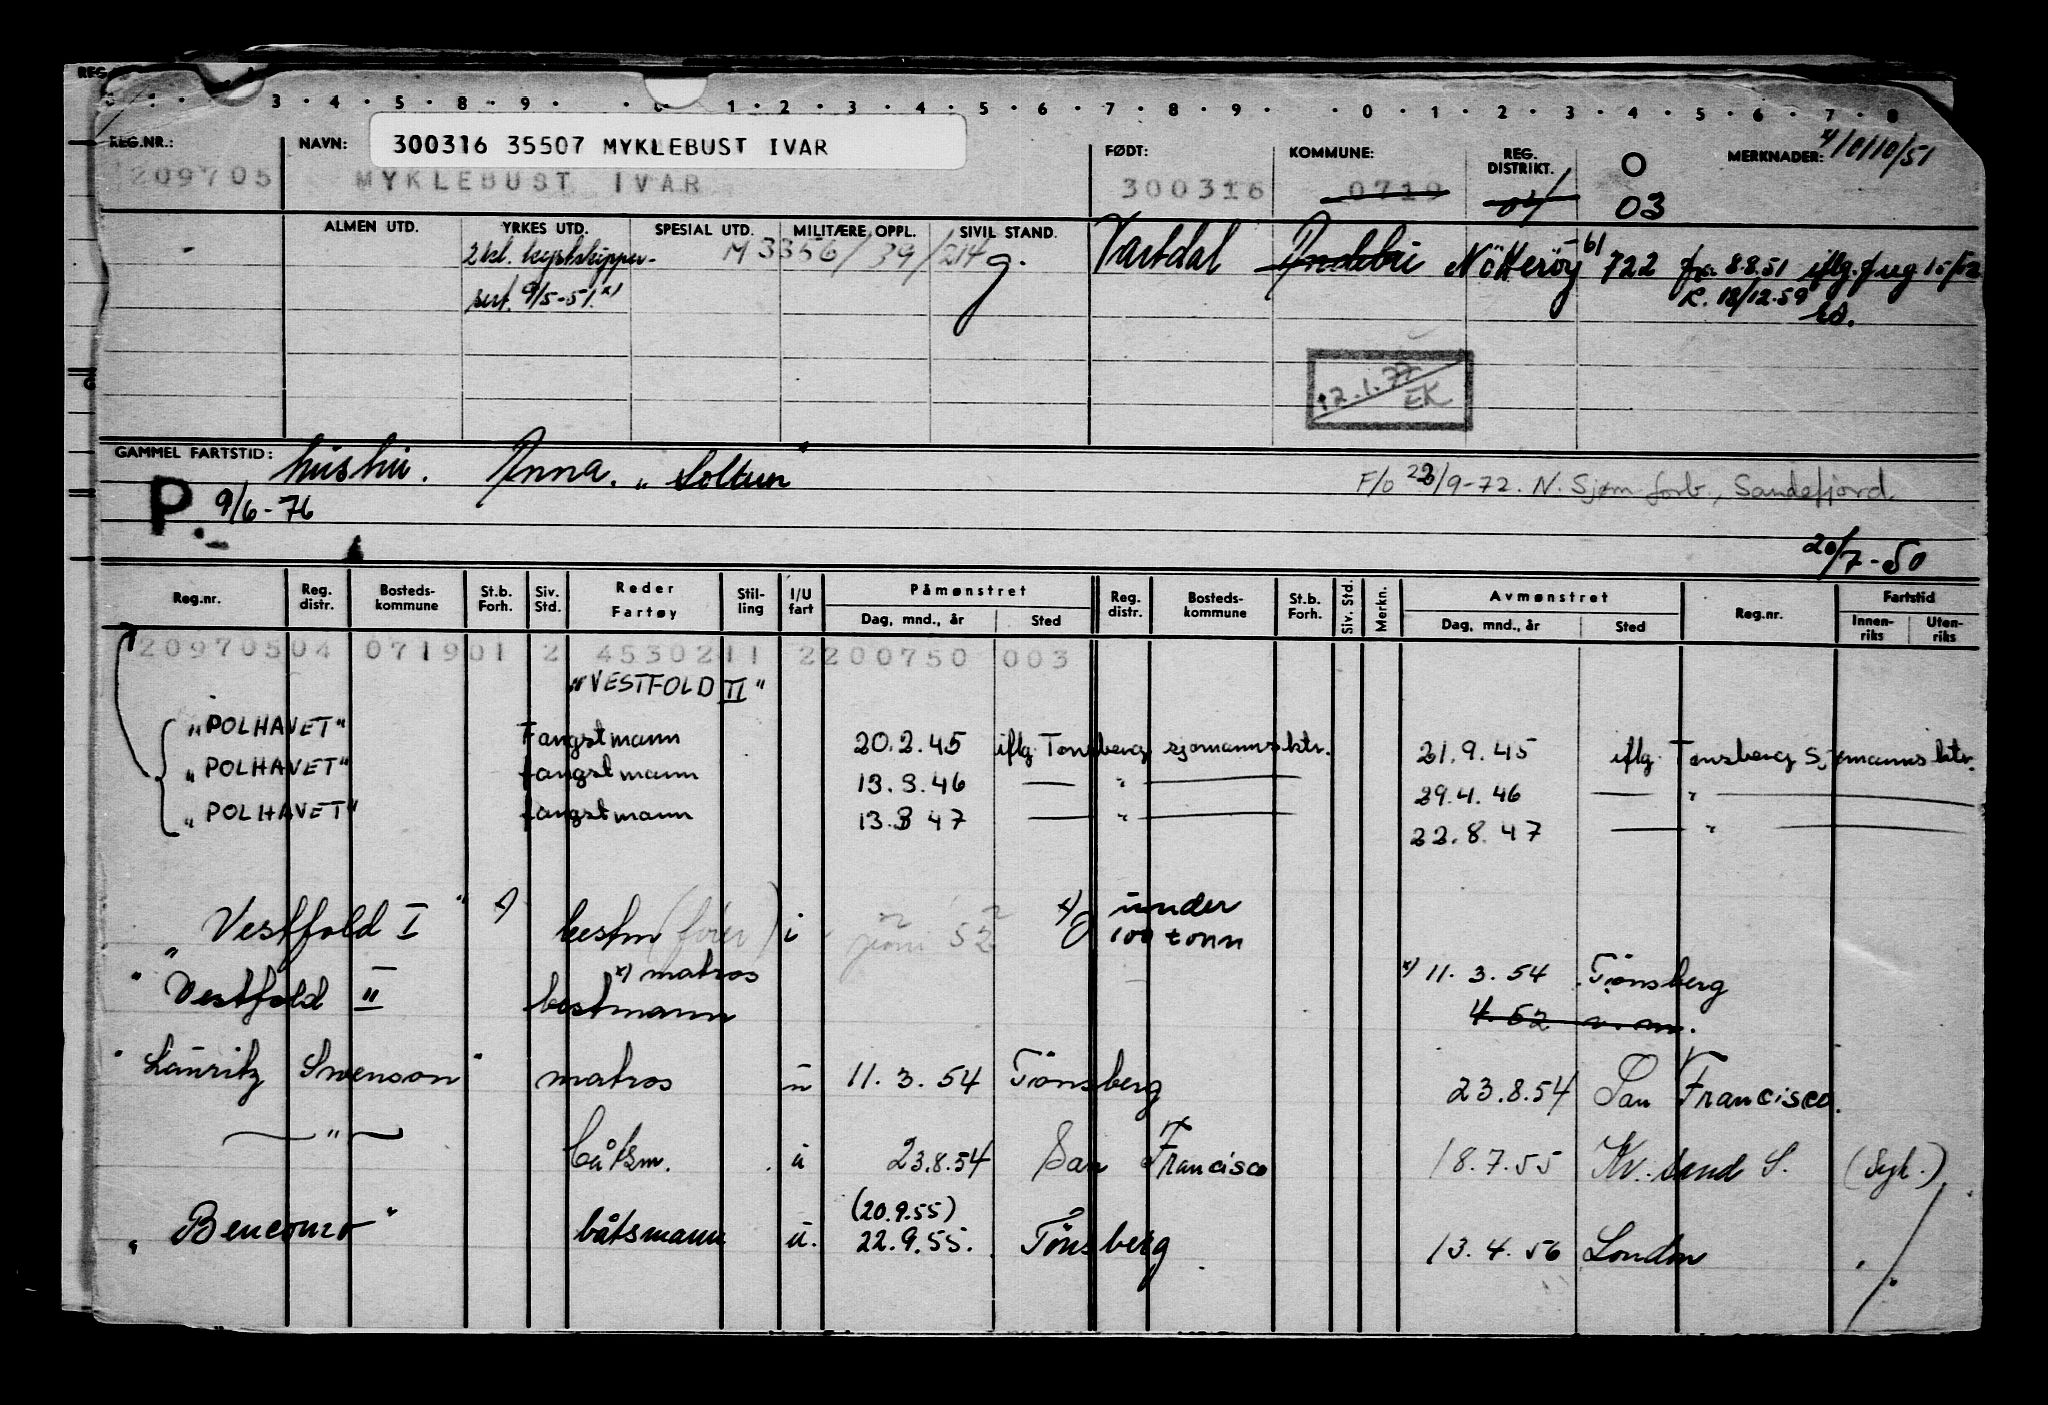 REG
3 · 4 · 5 · 8 · 9 · · 0 · 1 · 2 · 3 · 4 · 5 · 6 · 7 · 8 · 9 · · 0 · 1 · 2 · 3 · 4 · 5 · 6 · 7 · 8
REG.NR.: NAVN: 300316 35507 MYKLEBUST IVAR FØDT: KOMMUNE: REG. DISTRIKT. O MERKNADER: x/ 10/10/51
209705 MYKLEBUST IVAR 300316 0719 04 03
ALMEN UTD. YRKES UTD. SPESIAL UTD. MILITÆRE OPPL. SIVIL STAND.
2 kl. kystskipper- M 3356/39/214 g. Vartdal Andebu Nötteröy -61 722 fra 8.8.51 iflg. f reg 15/12
sert. 9/5-51. x) R. 18/12.59
12.1.72 EK
GAMMEL FARTSTID: hüstrü. Anna. "Soltun" F/o 22/9-72. N. Sjøm.forb., Sandefjord
P. 9/6-76
20/7-50
Reg.nr. Reg. distr. Bosteds-kommune St.b. Forh. Siv. Std. Reder Fartøy Stil-ling I/U fart Påmønstret Reg. distr. Bosteds-kommune St.b. Forh. Siv. Std. Merkn. Avmønstret Reg.nr. Fartstid
Dag, mnd., år Sted Dag, mnd., år Sted Innen-riks Uten-riks
20970504 071901 2 4530211 2200750 003
"VESTFOLD II"
"POLHAVET" Fangstmann 20.2.45 iflg. Tønsberg sjømannsktr. 21.9.45 iflg. Tønsberg Sjømannsktr.
"POLHAVET" fangstmann 13.3.46 — " — 29.4.46 — " —
"POLHAVET" fangstmann 13.3 47 — " — 22.8.47 — " —
"Vestfold I" x) bestm i juni 52 x) ünder
100 tonn
"Vestfold II" x) matros x) 11.3.54 Tönsberg
bestmann 4.52
"Lauritz Swenson" matros ü 11.3.54 Tönsberg 23.8.54 San Francisco.
— " — båtsm. u 23.8.54 San Francisco 18.7.55 Kr.sand S. (Syk.)
(20.9.55)
"Bencomo" båtsmann ü. 22.9.55. Tönsberg 13.4.56 London